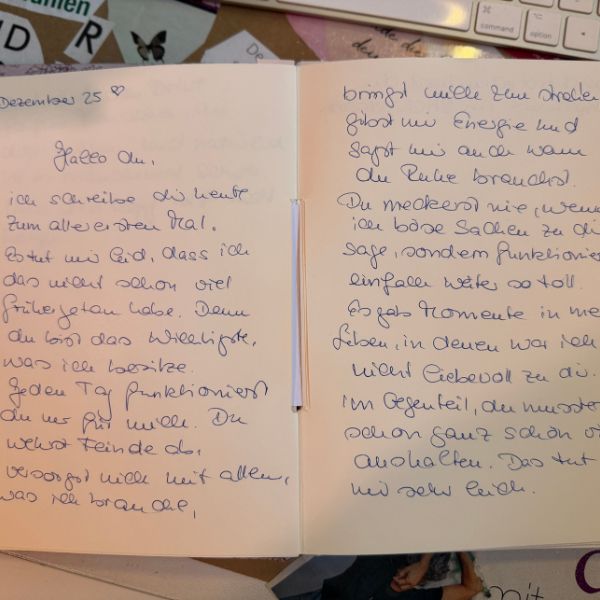 Dezember 25 ♡
Hallo du,
ich schreibe dir heute
zum allerersten Mal.
Es tut mir leid, dass ich
das nicht schon viel
früher getan habe. Denn
du bist das Wichtigste,
was ich besitze.
Jeden Tag funktionierst
du nur für mich. Du
wehrst Feinde ab,
versorgst mich mit allem,
was ich brauche,
bringst mich zum
gibst mir Energie und
sagst mir auch wann
du Ruhe brauchst.
Du meckerst nie, wenn
ich böse Sachen zu di
sage, sondern funktionier
einfach weiter so toll.
Es gab Momente in me
Leben, in denen war ich
nicht liebevoll zu dir.
Im Gegenteil, du musste
schon ganz schön vi
aushalten. Das tut
mir sehr leid.
D R
command
option
mit